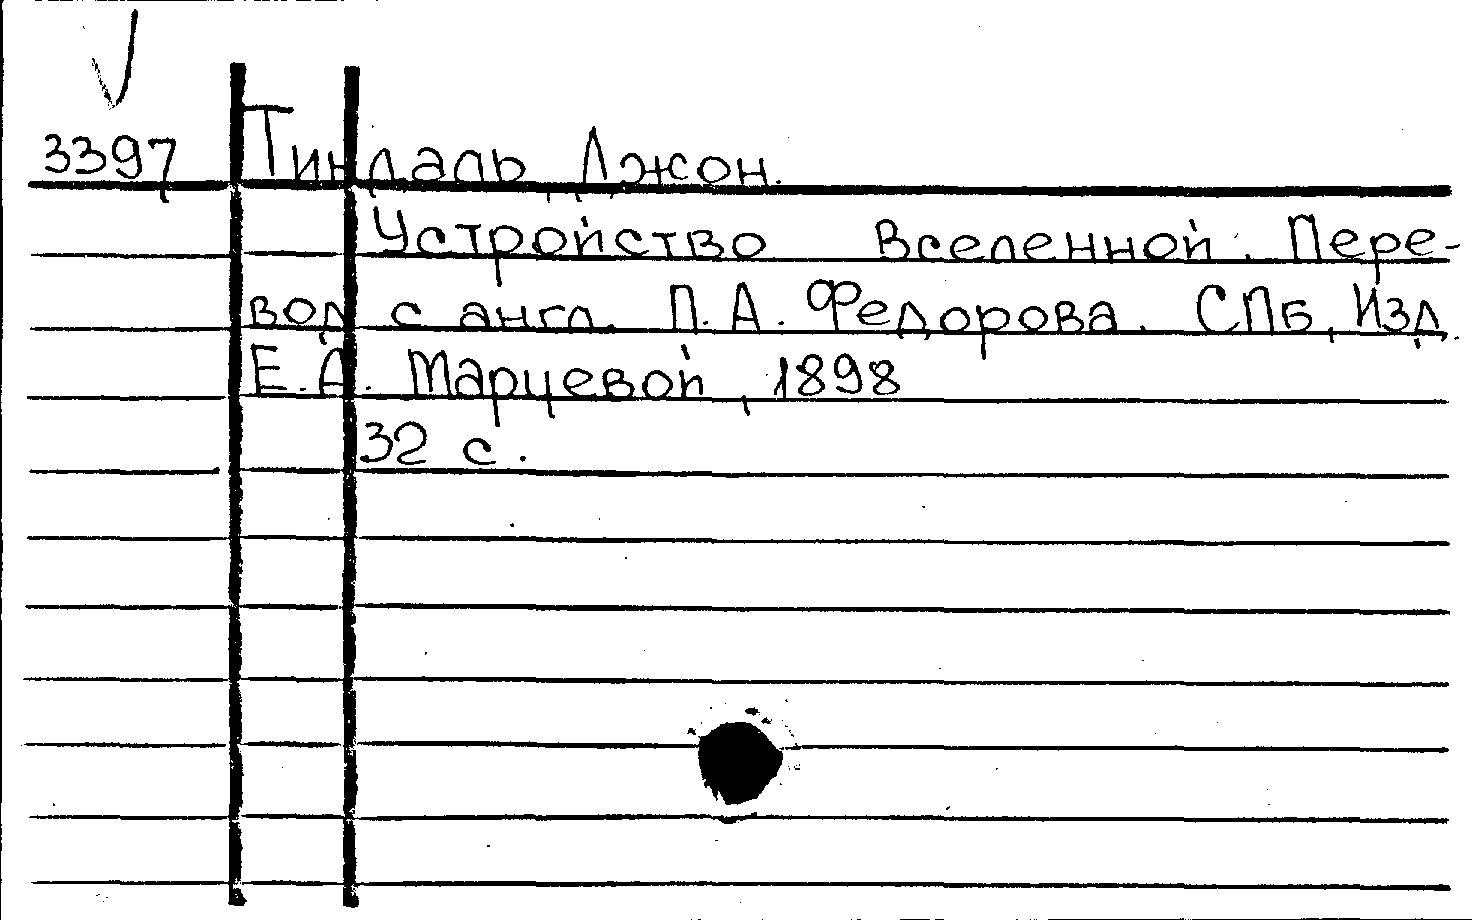 3397 Тиндаль, Джон.
Устройство Вселенной. Пере-
вод с англ. П. А. Федорова. СПб, Изд.
Е. А. Марцевой, 1898
32 с.